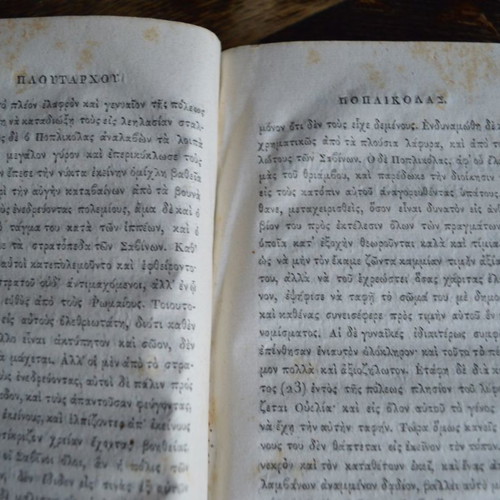 ΠΛΟΥΤΑΡΧΟΥ
πλέον ἐλαφρὸν καὶ γενναῖον τῆς πόλεως
νὰ καταδιώξῃ τοὺς εἰς λεηλασίαν σταλ-
δὲ ὁ Ποπλικόλας ἀναλαβὼν τὰ λοιπὰ
μεγάλον γύρον καὶ ἐπερικύκλωσε τοὺς
ἔπεσε τὴν νύκτα ἐκείνην ὁμίχλη βαθεῖα
τὴν αὐγὴν καταβαίνων ἀπὸ τὰ βουνὰ
ἐνεδρεύοντας πολεμίους, ἅμα δὲ καὶ ὁ
τάγμα του κατὰ τῶν ἱππέων, καὶ ὁ
τὰ στρατόπεδα τῶν Σαβίνων. Καθ'
κατεπολεμοῦντο καὶ ἐφθείροντο
οὐδ' ἀντιμαχόμενοι, ἀλλ' ἐν ᾧ
εὐθὺς ἀπὸ τοὺς Ῥωμαίους. Τοιουτο-
εἰς αὐτοὺς ὀλεθριωτάτη, διότι καθὲν
εἶναι ἀκτύπητον καὶ σῶον, δὲν
μάχεται. Ἀλλ' οἱ μὲν ἀπὸ τὸ στρα-
ἐνεδρεύοντας, αὐτοὶ δὲ πάλιν πρὸς
καὶ τοὺς ἀπαντοῦσαν φεύγοντας,
ἐκείνους, καὶ ἐλπίζοντες ἀπ' ἐκείνους
χρείαν ἔχοντας βοηθείας
οἱ Σαβῖνοι ὅλοι, ἂν ἡ πόλις τῶν
δὲν ἔδιδεν εἰς
ΠΟΠΛΙΚΟΛΑΣ.
μόνον ὅτι δὲν τοὺς εἶχε δεμένους. Ἐνδυναμώθη δὲ
χρηματικῶς ἀπὸ τὰ πλούσια λάφυρα, καὶ ἀπὸ τ
λώτους τῶν Σαβίνων. Ὁ δὲ Ποπλικόλας, ἀφ' οὗ
μὸς τοῦ θριάμβου, καὶ παρέδωκε τὴν διοίκησιν
εἰς τοὺς κατόπιν αὐτοῦ ἀναγορευθέντας ὑπάτους,
θανε, μεταχειρισθείς, ὅσον εἶναι δυνατὸν εἰς ἀν
βίον του πρὸς ἐκτέλεσιν ὅλων τῶν πραγμάτων
ὁποῖα κατ' ἐξοχὴν θεωροῦνται καλὰ καὶ τίμια
ὡς νὰ μὴν τὸν ἔκαμε ζῶντα καμμίαν τιμὴν ἀξία
του, ἀλλὰ νὰ τοῦ ἐχρεώστει ὅσας χάριτας ἔλ
νον, ἐψήφισε νὰ ταφῇ τὸ σῶμά του μὲ δημ
καὶ καθένας συνεισέφερε πρὸς τιμὴν αὐτοῦ ἓν
νομίσματος. Αἱ δὲ γυναῖκες ἰδιαιτέρως συμφ
ἐπένθησαν ἐνιαυτὸν ὁλόκληρον· καὶ τοῦτο τὸ
μον πολλὰ καὶ ἀξιοζήλωτον. Ἐτάφη δὲ διὰ
τος (23) ἐντὸς τῆς πόλεως πλησίον τοῦ λ
ζεται Οὐελία· καὶ εἰς ὅλον αὐτοῦ τὸ γένος
νὰ ἔχῃ τὴν αὐτὴν ταφήν. Τώρα ὅμως κανεὶς
νους του δὲν θάπτεται εἰς ἐκεῖνον τὸν τόπον
νεκρὸν καὶ τὸν καταθέτουν ἐκεῖ, καὶ ἕνας ἀ
λαμβάνων ἀναμμένον δᾳδίον, βάλλει αὐτὸ